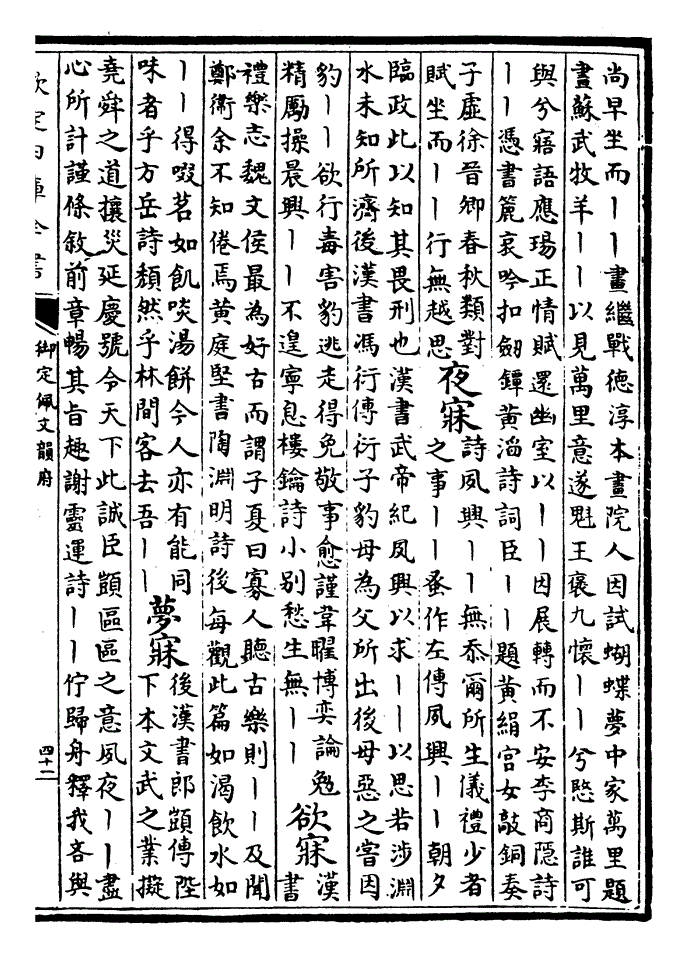 尚早坐而丨丨畫繼戰德淳本畫院人因試蝴蝶夢中家萬里題
畫蘇武牧羊丨丨以見萬里意遂魁王褒九懷丨丨兮愍斯誰可
與兮寤語應瑒正情賦還幽室以丨丨因展轉而不安李商隱詩
丨丨憑書簏哀吟扣劒鐔黄滔詩詞臣丨丨題黄絹宫女敲銅奏
子虚徐晉卿春秋類對
賦坐而丨丨行無越思
夜寐
詩夙興丨丨無忝爾所生儀禮少者
之事丨丨蚤作左傳夙興丨丨朝夕
臨政此以知其畏刑也漢書武帝紀夙興以求丨丨以思若涉淵
水未知所濟後漢書馮衍傳衍子豹母為父所出後母惡之嘗因
豹丨丨欲行毒害豹逃走得免敬事愈謹韋曜博奕論勉
精厲操晨興丨丨不遑寧息樓鑰詩小别愁生無丨丨
欲寐
漢
書
禮樂志魏文侯最為好古而謂子夏曰寡人聽古樂則丨丨及聞
鄭衛余不知倦焉黄庭堅書陶淵明詩後每觀此篇如渴飲水如
丨丨得啜茗如飢啖湯餅今人亦有能同
味者乎方岳詩頽然乎林間客去吾丨丨
夢寐
後漢書郎顗傳陛
下本文武之業擬
堯舜之道攘災延慶號令天下此誠臣顗區區之意夙夜丨丨盡
心所計謹條敘前章暢其旨趣謝靈運詩丨丨佇歸舟釋我吝與
欽定四庫全書
御定佩文韻府
四十二